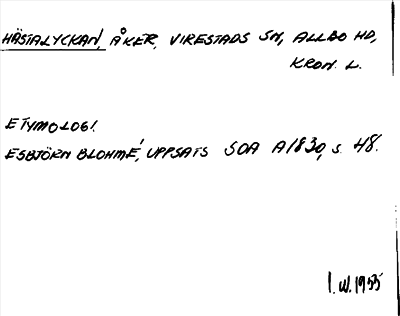 HÄSTALYCKAN, ÅKER, VIRESTADS SN, ALLBO HD,
KRON. L.
ETYMOLOGI.
ESBJÖRN BLOHMÉ, UPPSATS SOA A1830, S. 48.
I.W. 1955